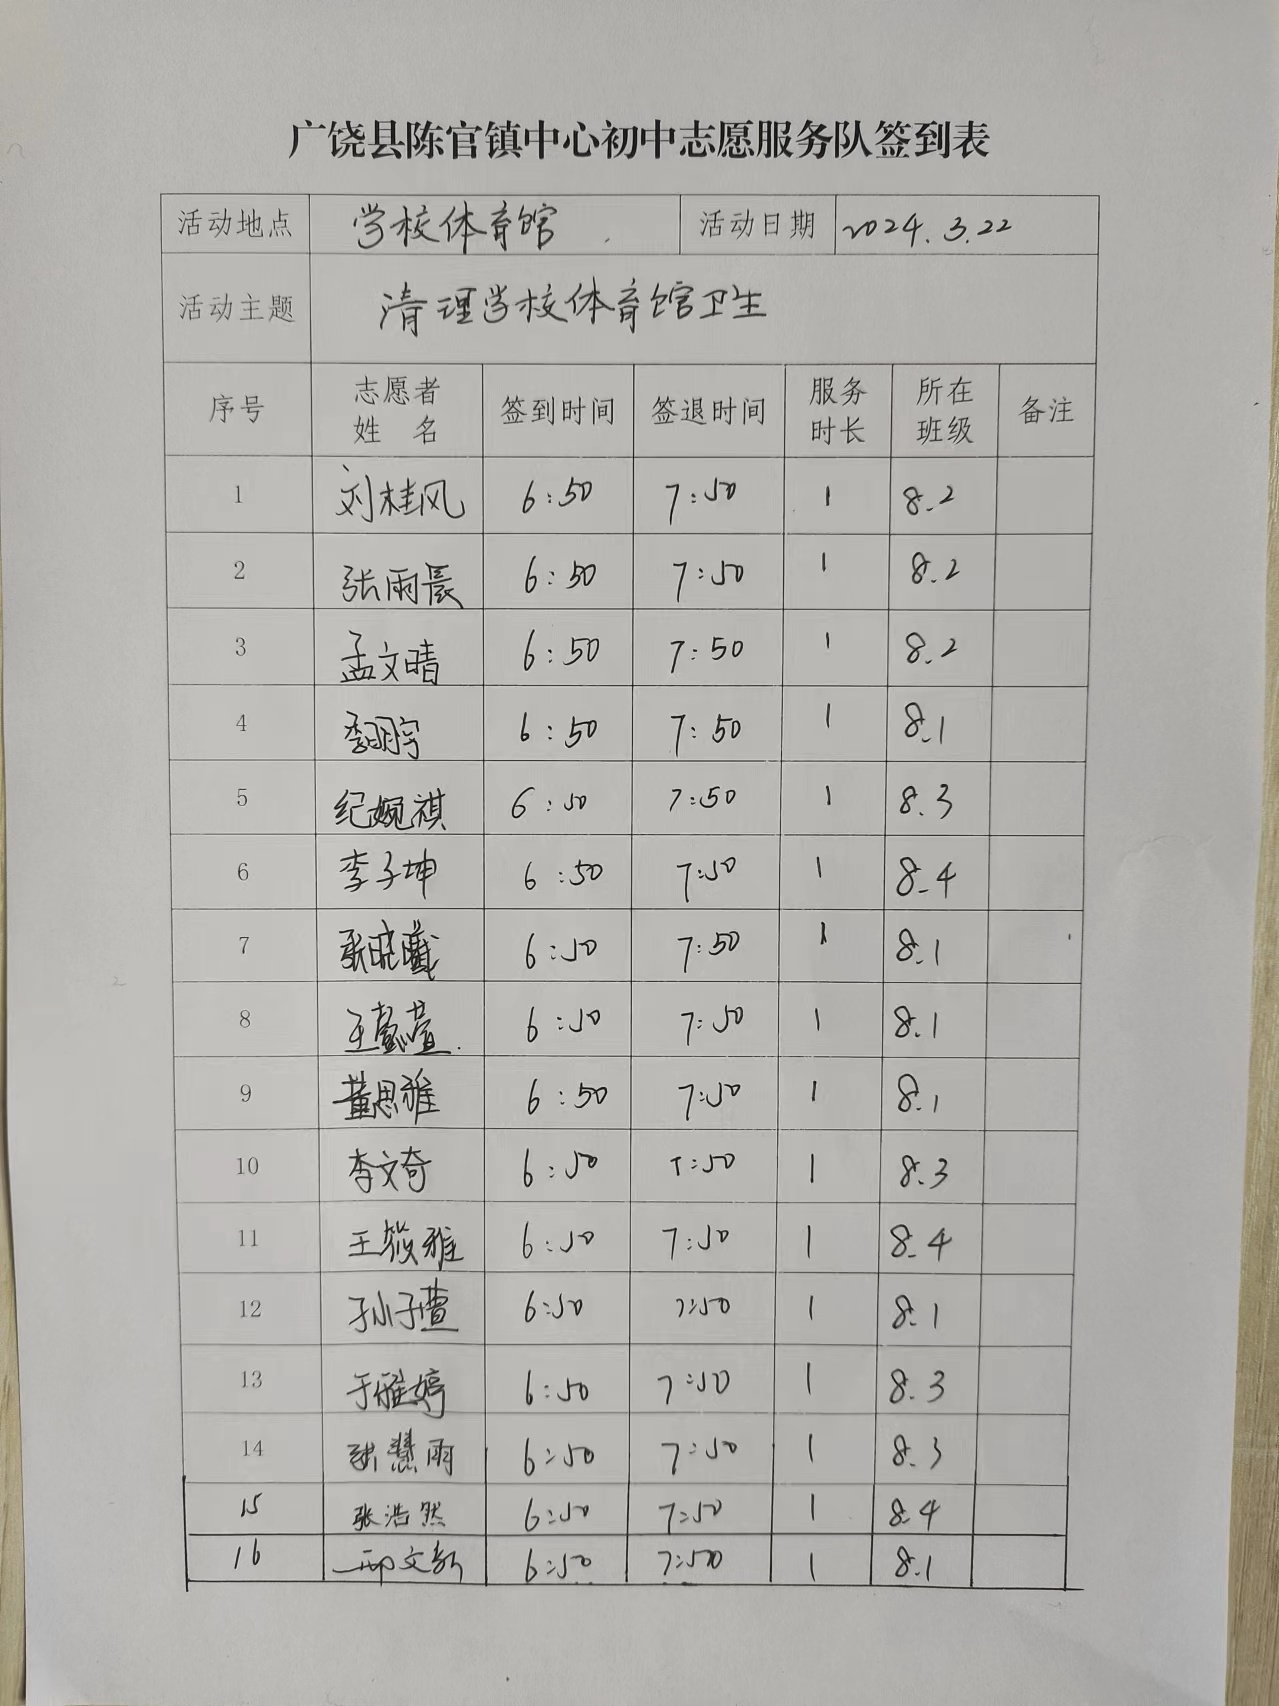 广饶县陈官镇中心初中志愿服务队签到表
活动地点 学校体育馆 活动日期 2024.3.22
活动主题 清理学校体育馆卫生
序号 志愿者姓 名 签到时间 签退时间 服务时长 所在班级 备注
1 刘桂风 6:50 7:50 1 8.2
2 张雨晨 6:50 7:50 1 8.2
3 孟文晴 6:50 7:50 1 8.2
4 6:50 7:50 1 8.1
5 纪婉祺 6:50 7:50 1 8.3
6 李子坤 6:50 7:50 1 8.4
7 张晓曦 6:50 7:50 1 8.1
8 王懿萱 6:50 7:50 1 8.1
9 董思雅 6:50 7:50 1 8.1
10 李文奇 6:50 7:50 1 8.3
11 王筱雅 6:50 7:50 1 8.4
12 孙子萱 6:50 7:50 1 8.1
13 于雅婷 6:50 7:50 1 8.3
14 张慧雨 6:50 7:50 1 8.3
15 张浩然 6:50 7:50 1 8.4
16 邢文新 6:50 7:50 1 8.1